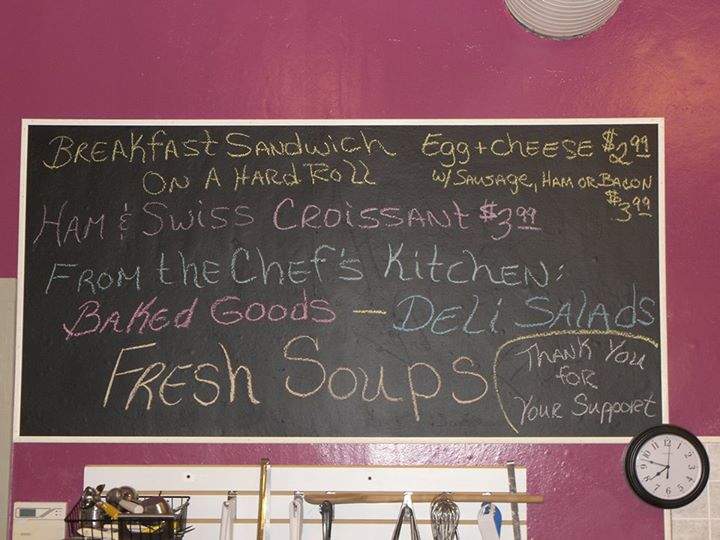 BREAKfAST SANDwich Egg + ChEESE $2.99
ON A HARd Roll w/ SAUSAge, HAM OR BACON $3.99
HAM & Swiss CROISSANt $3.99
FROM the Chef's KitchEN:
BAKEd GooDS — DELi SALAdS
FRESh Soups
ThANK You
foR
YouR SuppoRt
12 1 2 3 4 5 6 7 8 9 10 11